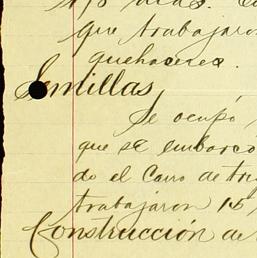 que trabajaron
quehaceres.
Semillas,
Se ocupó
que se embarcó
do el Carro de trig
trabajaron 15,
Construcción de